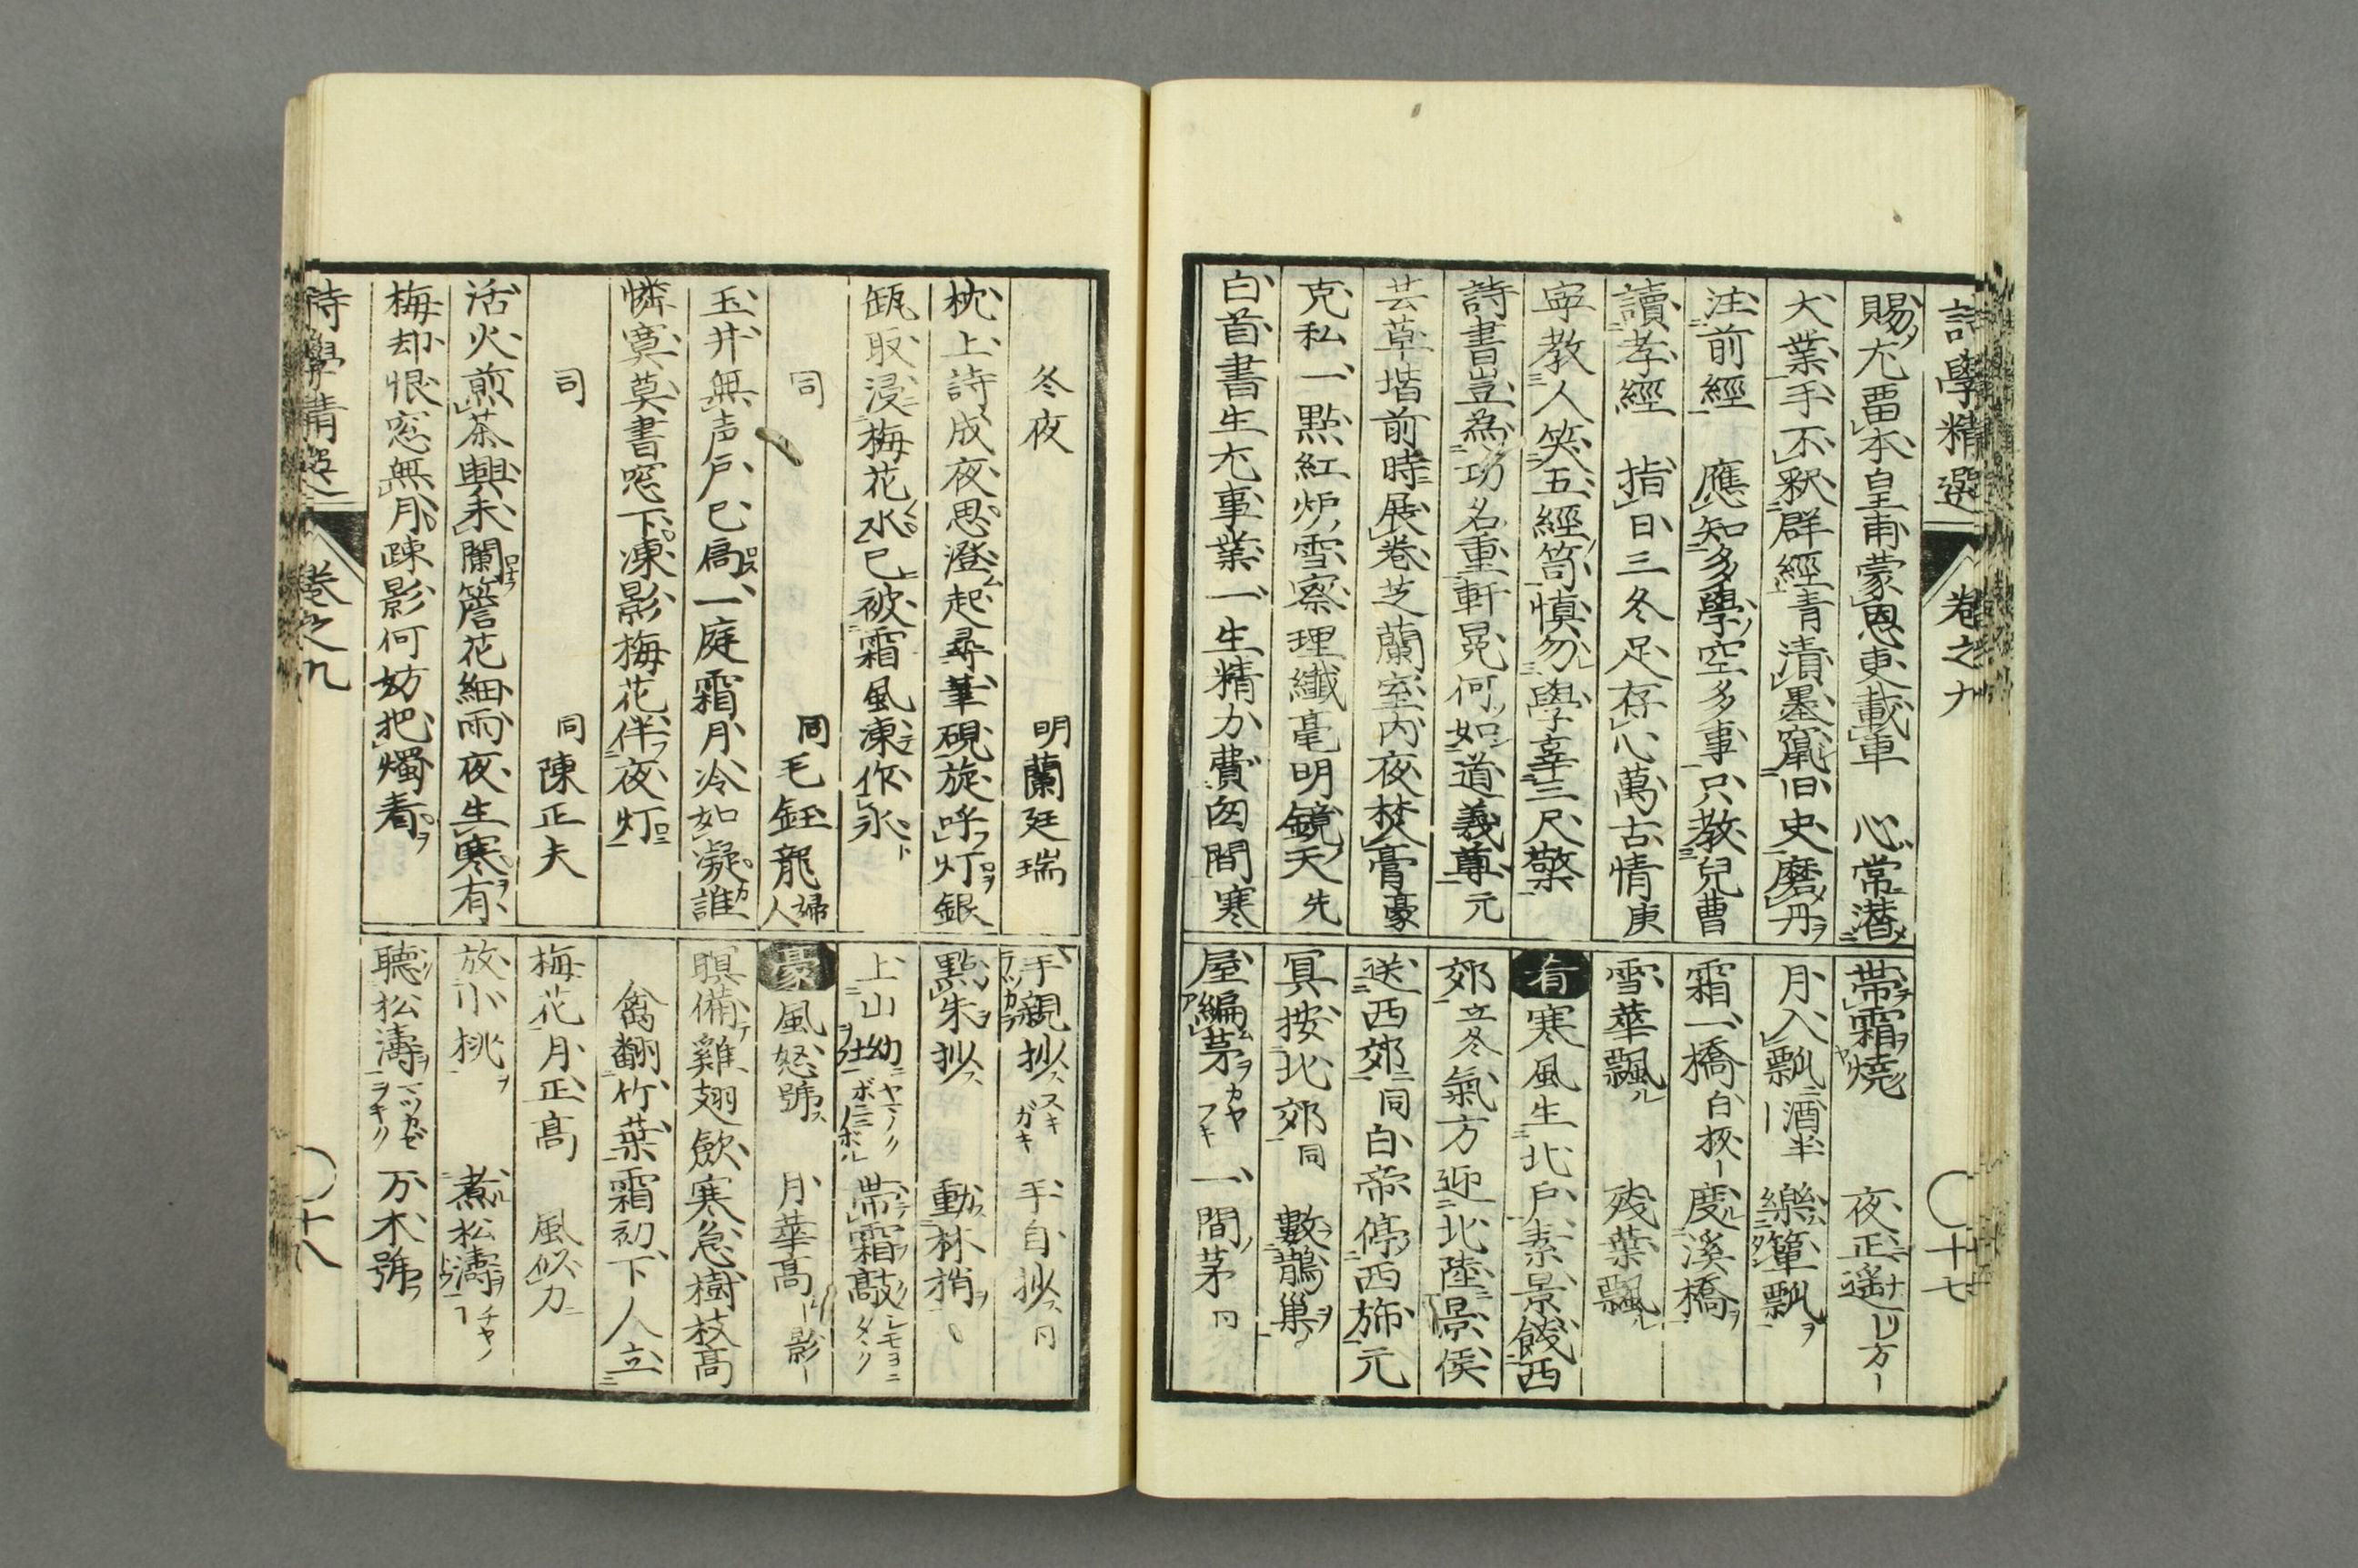 詩學精選 卷之九 〇十七
賜尤畱本皇甫蒙恩更載車 心常潜
大業手不釈群經青漬墨竄旧史磨丹
注前經 應知多學空多事只教兒曹
讀孝經 指日三冬足存心萬古情庚
寧教人笑五經笥慎勿學辜三尺檠
詩書豈為功名重軒冕何如道義尊元
芸草堦前時展卷芝蘭室内夜焚膏豪
克私一點紅炉雪察理纎毫明鏡天先
白首書生尤事業一生精力費囱間寒
帯霜燒 夜正遥
月入瓢酒半 樂簞瓢
霜一橋 度溪橋
雪華飄 残葉飄
肴 寒風生北戸素景餞西
郊立冬氣方迎北陸景侯
送西郊同白帝停西旆元
冥按北郊同 數鵲巢
屋編茅カヤフキ 一間茅
冬夜 明蘭廷瑞
枕上詩成夜思澄起尋筆硯旋呼灯銀
缾取浸梅花水已被霜風凍作氷
同 同毛鈺龍婦人
玉井無声戸已扃一庭霜月冷如凝誰
憐寞莫書窓下凍影梅花伴夜灯
同 同陳正夫
活火煎茶興未闌簷花細雨夜生寒有
梅却恨窓無月踈影何妨把燭看
手親抄スキガキ 手自抄
點朱抄 動林梢
上山幼 帯霜敲
豪 風怒號 月華高
瞑備雞翅歛寒急樹枝高
禽翻竹葉霜初下人立
梅花月正高 風似刀
放小桃 煮松濤
聽松濤 万木號
詩學精選 卷之九 〇十八